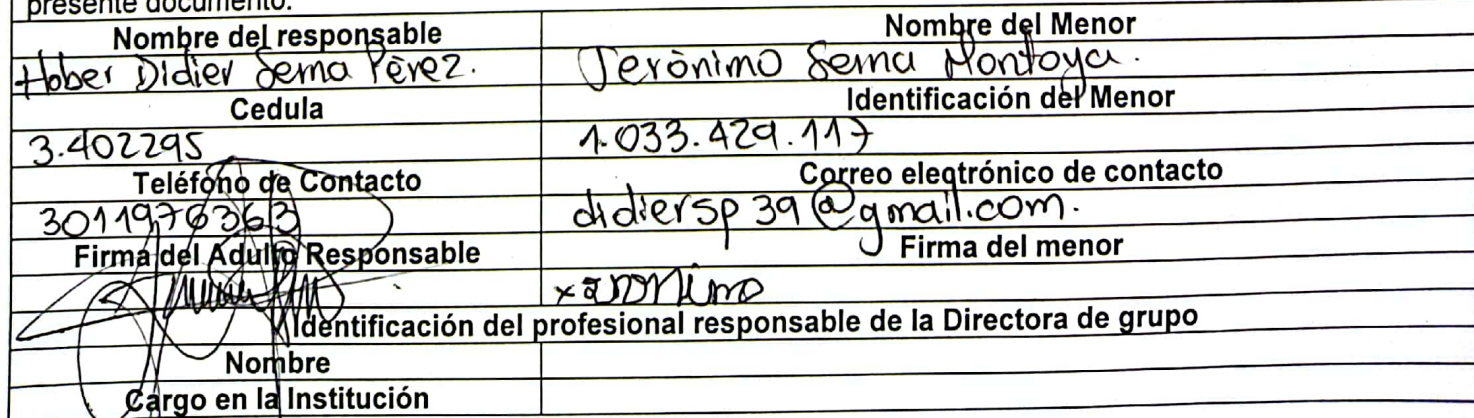 presente documento.
Nombre del responsable Nombre del Menor
Hober Didier Serna Pérez. Jerónimo Serna Montoya.
Cedula Identificación del Menor
3.402295 1.033.429.117
Teléfono de Contacto Correo electrónico de contacto
3011976363 didiersp39@gmail.com.
Firma del Adulto Responsable Firma del menor
Identificación del profesional responsable de la Directora de grupo
Nombre
Cargo en la Institución